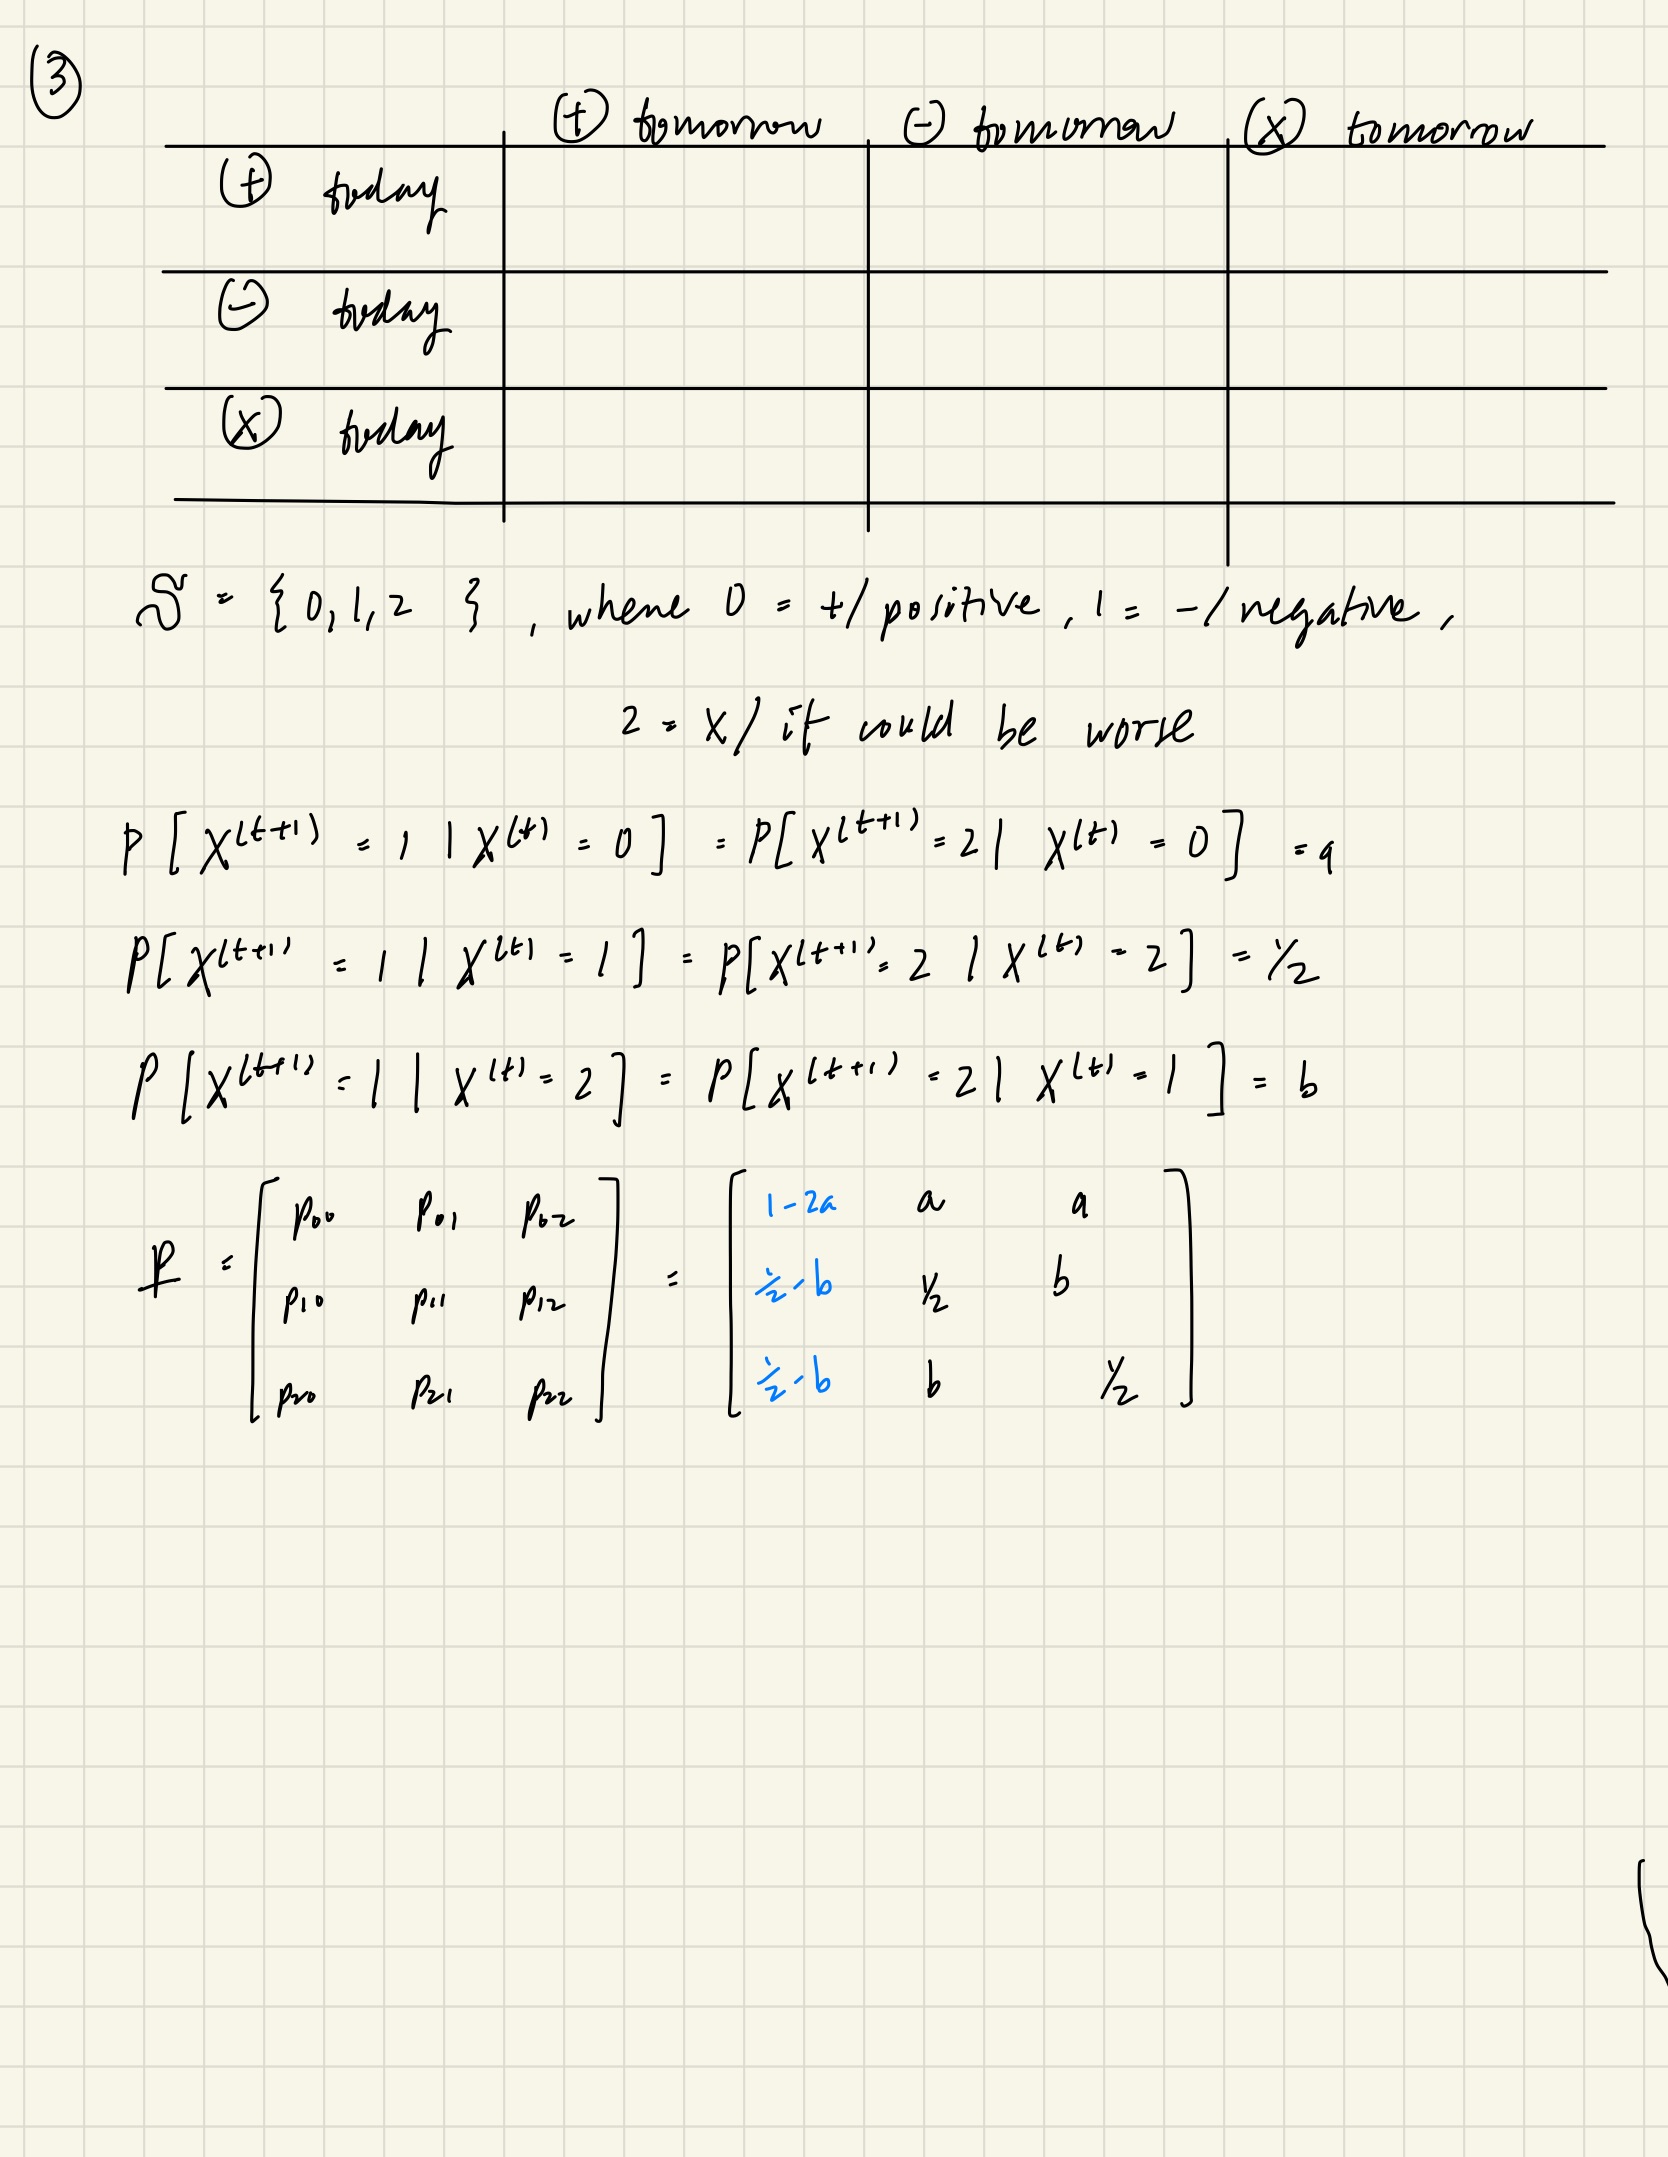 ③
⊕ tomorrow ⊖ tomorrow ⓧ tomorrow
⊕ today
⊖ today
ⓧ today
S = { 0, 1, 2 } , where 0 = +/ positive , 1 = -/ negative ,
2 = x/ it could be worse
P [ X^(t+1) = 1 | X^(t) = 0 ] = P[ X^(t+1) = 2 | X^(t) = 0 ] = a
P[ X^(t+1) = 1 | X^(t) = 1 ] = P[ X^(t+1) = 2 | X^(t) = 2 ] = 1/2
P [ X^(t+1) = 1 | X^(t) = 2 ] = P[ X^(t+1) = 2 | X^(t) = 1 ] = b
p00 p01 p02 1-2a a a
P = p10 p11 p12 = 1/2-b 1/2 b
p20 p21 p22 1/2-b b 1/2